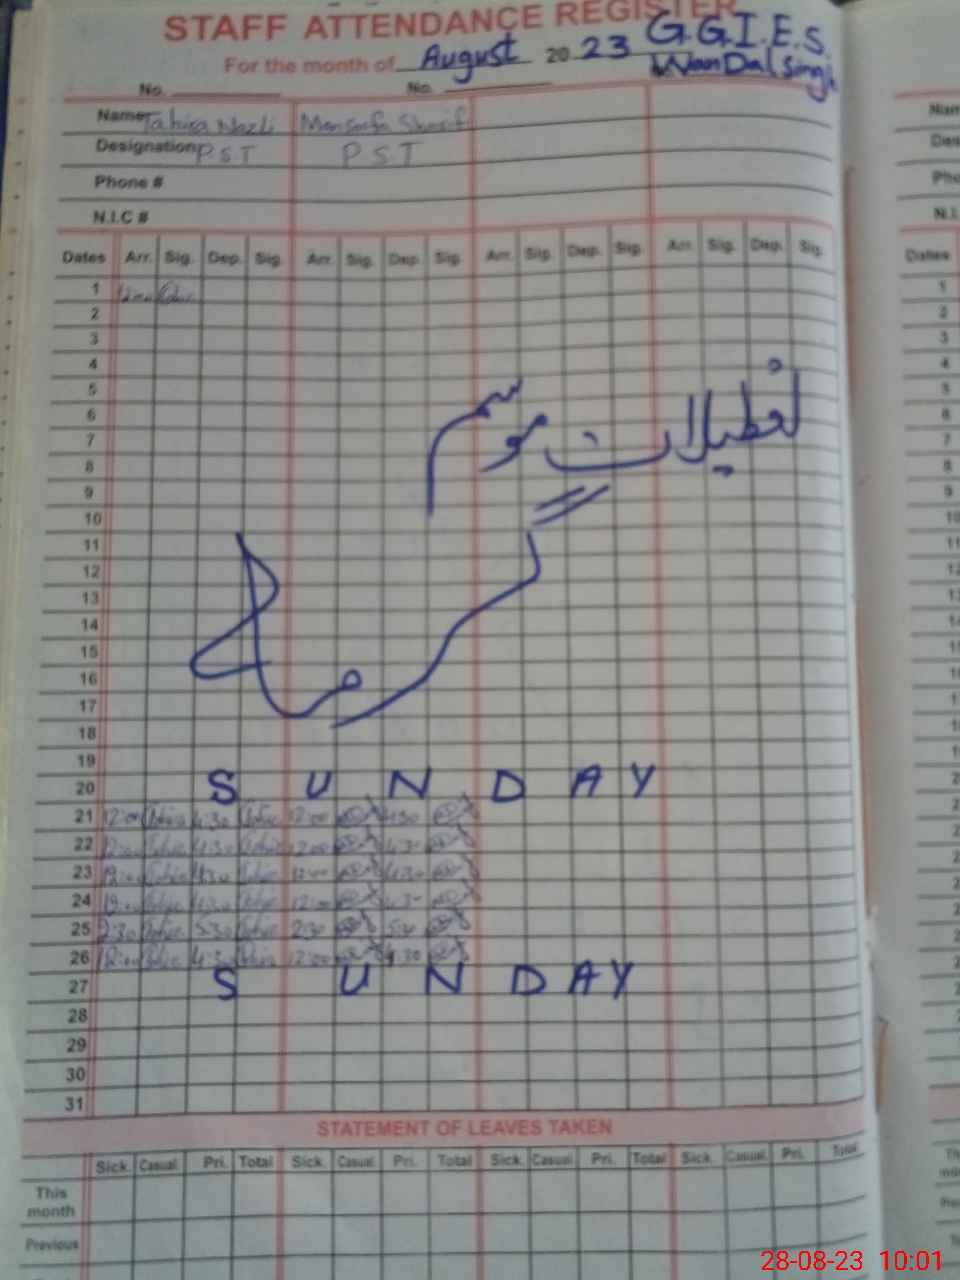 STAFF ATTENDANCE REGISTER
G.G.I.E.S.
For the month of August 2023
WanDal Singh
No. No.
Name Tahira Nazli
Designation P S T P S T
Phone #
N.I.C #
Dates Arr. Sig. Dep. Sig. Arr. Sig. Dep. Sig. Arr. Sig. Dep. Sig. Arr. Sig. Dep. Sig.
1
2
3
4
5
6
7
8
تعطیلات موسم
9
10
11
12
13
14
15
گرما
16
17
18
19
20 S U N D A Y
21 12:00 4:30 12:00 4:30
22 12:00 4:30 12:00 4:30
23 12:00 4:30 12:00 4:30
24 12:00 4:30 12:00 4:30
25 2:30 5:30 2:30 5:30
26 12:00 4:30 12:00 4:30
27 S U N D A Y
28
29
30
31
STATEMENT OF LEAVES TAKEN
Sick. Casual. Pri. Total Sick. Casual. Pri. Total Sick. Casual. Pri. Total Sick. Casual. Pri. Total
This month
Previous
28-08-23 10:01